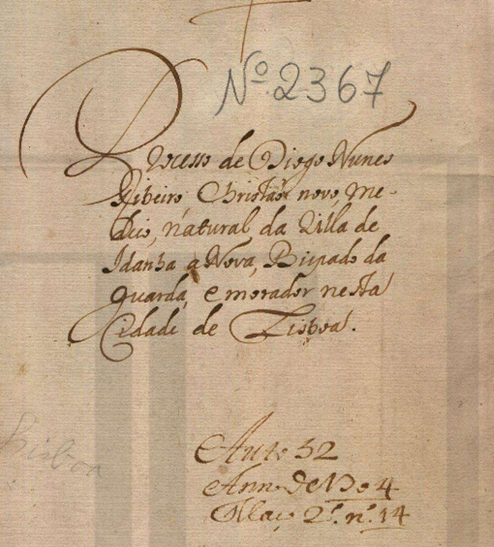 Nº 2367
Processo de Diogo Nunes
Ribeiro, Christaõ novo, me-
dico, natural da Villa de
Idanha a Nova, Bispado da
guarda, e morador nesta
Cidade de Lisboa.
Lisboa
Auto 52
Anno de 1704
Maço 2º. nº. 14